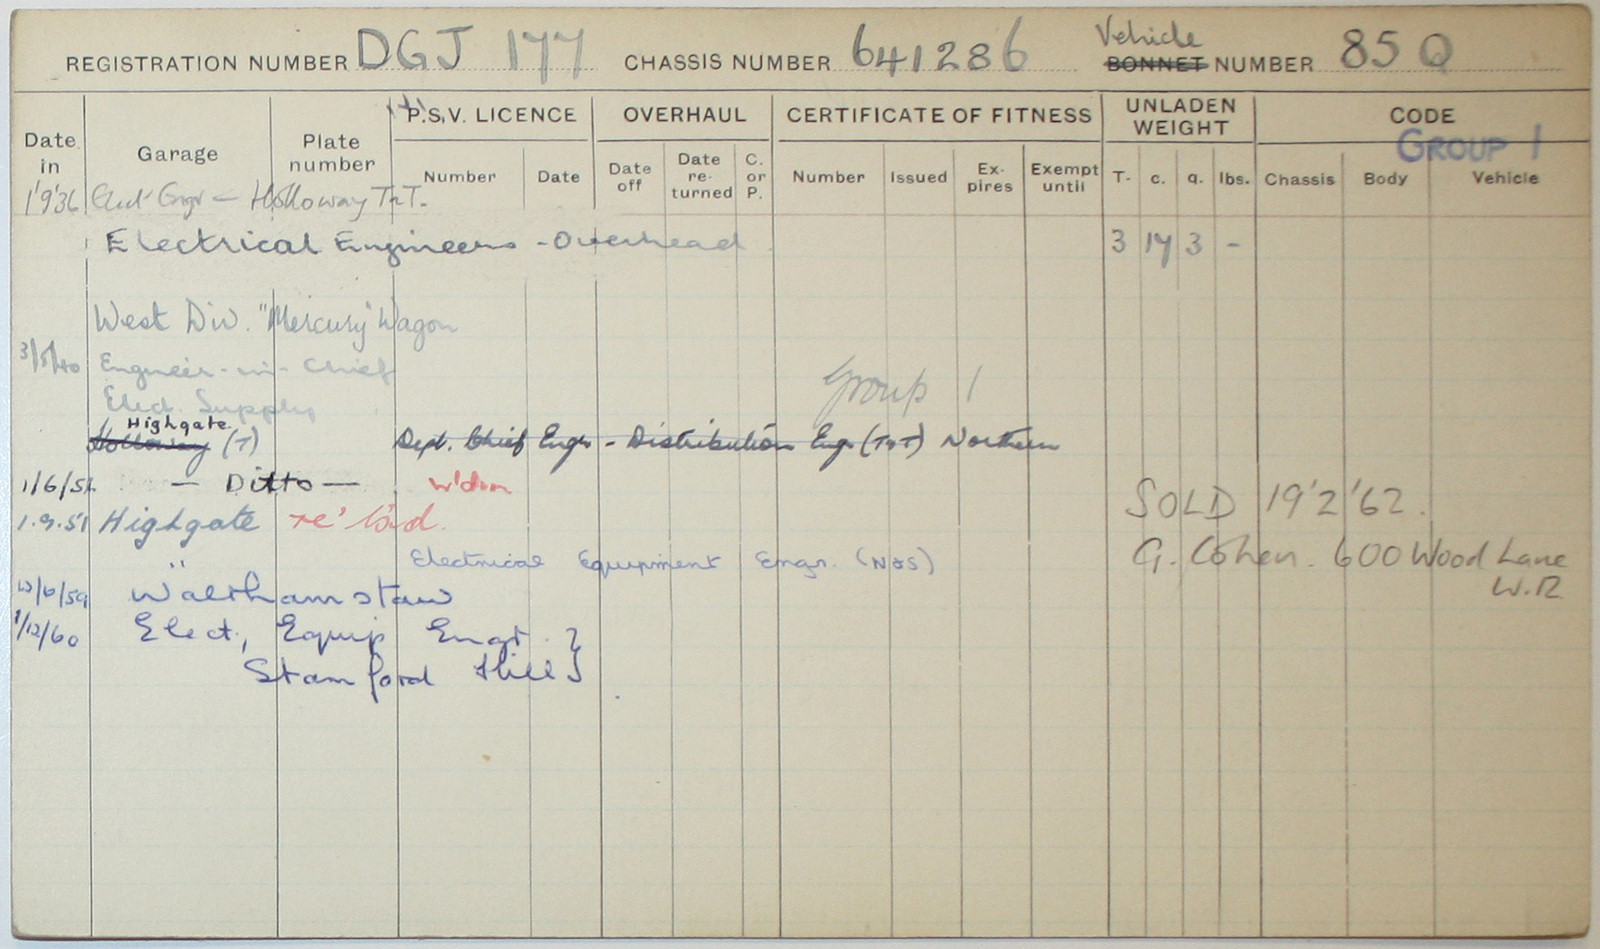 Vehicle
REGISTRATION NUMBER DGJ 177 CHASSIS NUMBER 641286 BONNET NUMBER 85 Q
P.S.V. LICENCE OVERHAUL CERTIFICATE OF FITNESS UNLADEN WEIGHT CODE
GROUP 1
Date in Garage Plate number Number Date Date off Date re-turned C. or P. Number Issued Ex-pires Exempt until T. c. q. lbs. Chassis Body Vehicle
1'9'36 Engr Holloway
Electrical Engineers - Overhead 3 17 3 -
West Div. "Mercury" Wagon
3/5/40 Engineer-in-Chief Group 1
Elect. Supply
Highgate
Holloway (T) Dept. Chief Engr - Distribution Engr (T&T) Northern
1/6/51 — Ditto — w'dm
1.9.51 Highgate re' lic'd.
SOLD 19'2'62.
" Electrical Equipment Engr. (N&S)
G. Cohen. 600 Wood Lane
W.12
/6/59 Walthamstow
1/12/60 Elect, Equip Engr. }
Stamford Hill }